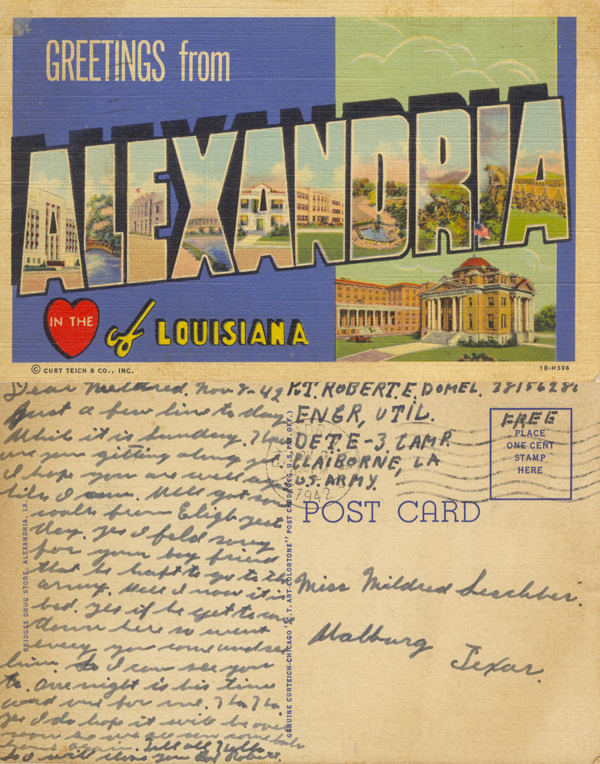 GREETINGS from
ALEXANDRIA
IN THE
of LOUISIANA
© CURT TEICH & CO., INC.
1B-H396
Dear Mildred, Nov 8-42
Just a few line to day
While it is Sunday. How
are you gitting along
I hope you are well as
like I am. Well got
from Eligh yest
day. yes I feld sorry
for your boy friend
that he haft to go to the
army. Well I now it is
bad. yes if he get to come
down here so went
every you come and see
him. So I can see you
to. One night is his time
and one for me. Ha Ha
yes I do hope it will be over
soon so we all can
home again. Tell all Hello
So I will close your Robert.
BRIDGES DRUG STORE, ALEXANDRIA, LA.
GENUINE CURTEICH-CHICAGO "C.T. ART-COLORTONE" POST CARD (REG. U.S. PAT. OFF.)
ROBERT. E. DOMEL. 38156280
ENGR, UTIL.
DET E-3, CAMP
CLAIBORNE, LA
U.S. ARMY.
1942
FREE
PLACE
ONE CENT
STAMP
HERE
POST CARD
Miss Mildred Leschber.
Walburg
Texas.